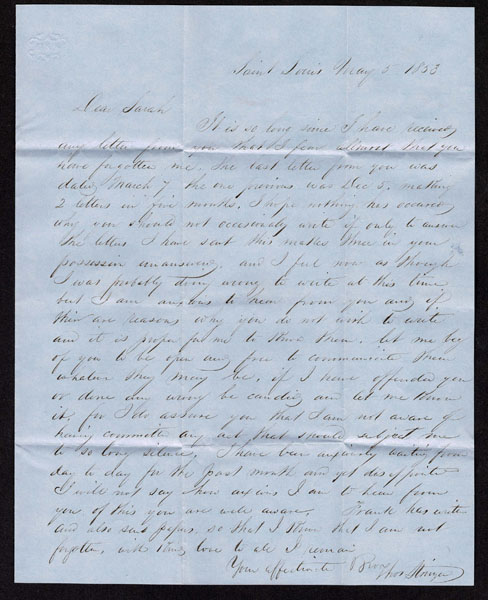 Saint Louis May 5 1853
Dear Sarah
It is so long since I have received
any letter from you that I fear almost that you
have forgotten me. The last letter from you was
dated March 7, the one previous was Dec 3, making
2 letters in five months. I hope nothing has occurred
why you should not occasionly write if only to answer
the letters I have sent this makes three in your
possession unanswered, and I feel now as though
I was probably doing wrong to write at this time
but I am anxious to hear from you and if
their are reasons why you do not wish to write
and it is proper for me to know them. let me beg
of you to be open and free to communicate them
whatever they may be, if I have offended you
or done any wrong be candid and let me know
it, for I do assure you that I am not aware of
having committed any act that should subject me
to so long silence, I have been anxiously waiting from
day to day for the past month and yet disappointed
I will not say how anxious I am to hear from
you of this you are well aware. Frank has write
and also said papers. so that I know that I am not
forgotten, with kind love to all I remain
Your affectionate Bro
Thos